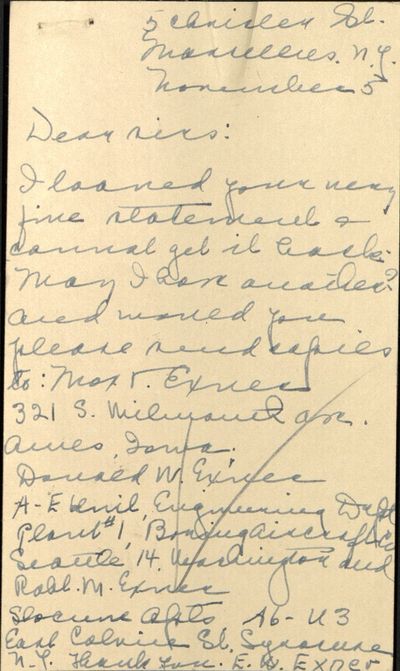 5 Chrisler St.
Marcellus, N.Y.
November 5
Dear sirs:
I loaned your very
fine statement &
cannot get it back.
May I have another?
And would you
please send copies
to: Max V. Exner
321 S. Wilmouth Ave.
Ames, Iowa.
Donald W. Exner
A-E Unit, Engineering Dept
Plant #1, Boeing Aircraft Co
Seattle, 14, Washington and
Robt. M. Exner
Slocum Apts A6-U3
East Colvin St. Syracuse
N.Y. Thank you. E. W. Exner